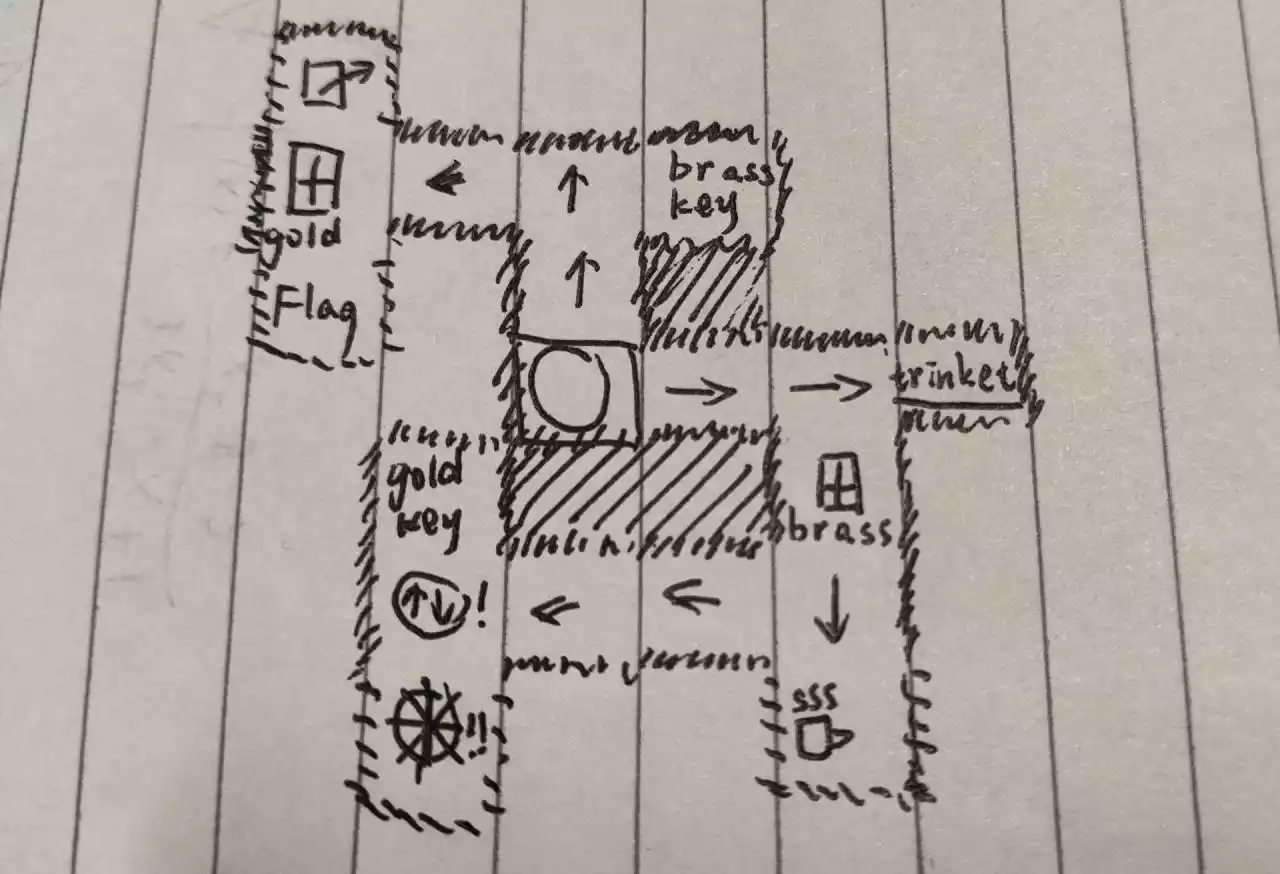 brass
key
gold
Flag
trinket
gold
key
brass
!
sss
!!